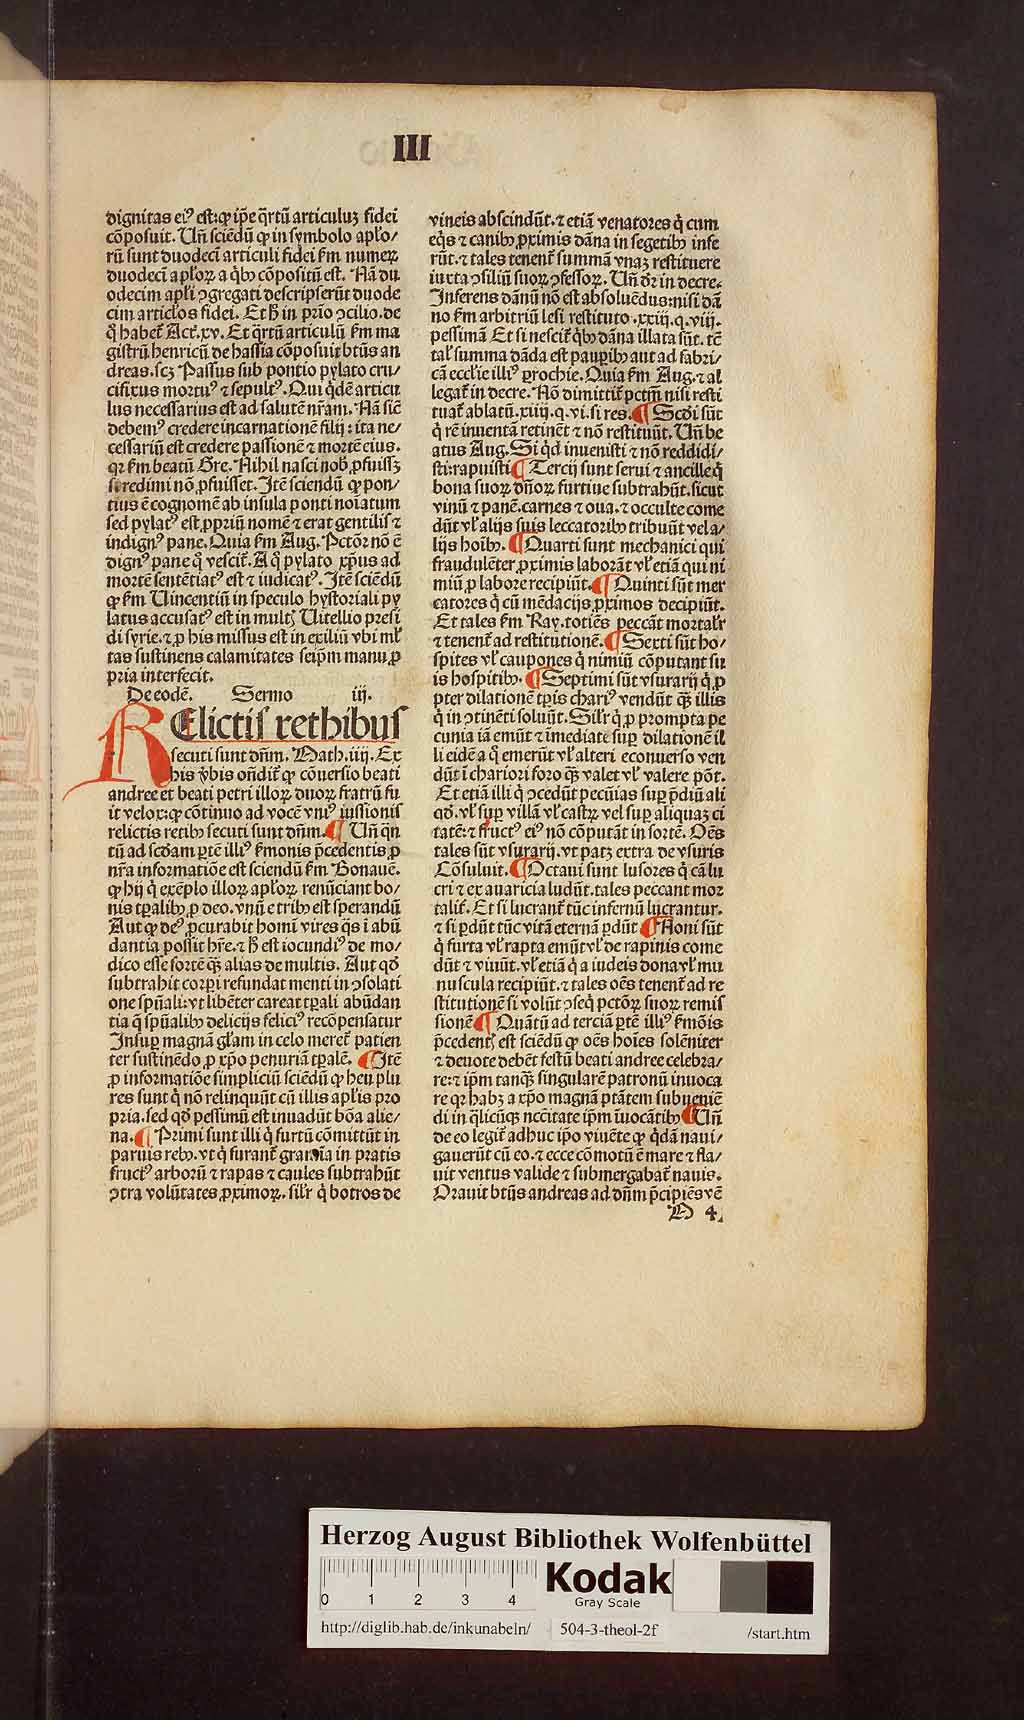 III
dignitas eiꝰ est: ꝙ ip̄e q̄rtū articuluꝫ fidei
cōposuit. Un̄ sciēdū ꝙ in symbolo apl'o/
rū sunt duodecī articuli fidei ẜm numeꝝ
duodecī apl'oꝝ a qͥbꝰ cōpositū est. Nā du
odecim apl'i ꝯgregati descripserūt duode
cim articl'os fidei. Et hͦ in prīo ꝯcilio. de
qͦ habet᷑ Act᷑. xv. Et q̄rtū articulū ẜm ma
gistrū henricū de hassia cōposuit bt̄us an
dreas. scꝫ Passus sub pontio pylato cru/
cifixus mortuꝰ ⁊ sepultꝰ. Qui qͥdē articu
lus necessarius est ad salutē nr̄am. Nā sic̄
debemꝰ credere incarnationē filij: ita ne/
cessariū est credere passionē ⁊ mortē eius.
qꝛ ẜm beatū Gre. Nihil nasci nob̄ ꝓfuissꝫ
si redimi nō ꝓfuisset. Jtē sciendū ꝙ pon/
tius ē cognomē ab insula ponti noīatum
sed pylatꝰ est ꝓpriū nomē ⁊ erat gentilis ⁊
indignꝰ pane. Quia ẜm Aug. Pctōr nō ē
dignꝰ pane qͦ vescit᷑. A qͦ pylato xp̄us ad
mortē sentētiatꝰ est ⁊ iudicatꝰ. Jtē sciēdū
ꝙ ẜm Uincentiū in speculo hystoriali py
latus accusatꝰ est in multꝭ Uitellio presi
di syrie. ⁊ ꝓ his missus est in exiliū vbi ml'
tas sustinens calamitates seip̄m manu ꝓ
pria interfecit.
De eodē. Sermo iij.
RElictis rethibus
secuti sunt dn̄m. Math. iiij. Ex
his v̄bis on̄dit᷑ ꝙ cōuersio beati
andree et beati petri illoꝝ duoꝝ fratrū fu
it velox: ꝙ cōtinuo ad vocē vniꝰ iussionis
relictis retibꝰ secuti sunt dn̄m. ¶ Un̄ q̄n
tū ad scd̄am ꝑtē illiꝰ ẜmonis p̄cedentis ꝓ
nr̄a informatiōe est sciendū ẜm Bonauē.
ꝙ hij qͥ exēplo illoꝝ apl'oꝝ renūciant bo/
nis tꝑalibꝰ ꝓ deo. vnū e tribꝰ est sperandū
Aut ꝙ deꝰ ꝓcurabit homi vires q̄s ī abū
dantia possit hr̄e. ⁊ hͦ est iocundiꝰ de mo/
dico esse sortē q̄ꝫ alias de multis. Aut qd̛
subtrahit corꝑi refundat menti in ꝯsolati
one spūali: vt libēter careat tꝑali abūdan
tia qͥ spūalibꝰ delicijs feliciꝰ recōpensatur
Jnsuꝑ magnā gl'am in celo meret᷑ patien
ter sustinēdo ꝓ xp̄o penuriā tꝑalē. ¶ Jtē
ꝓ informatiōe simpliciū sciēdū ꝙ heu plu
res sunt qͥ nō relinquūt cū illis apl'is pro
pria. sed qd̛ pessimū est inuadūt bōa alie/
na. ¶ Primi sunt illi qͥ furtū cōmittūt in
paruis rebꝰ. vt qͥ furant᷑ gramīa in pratis
fructꝰ arborū ⁊ rapas ⁊ caules subtrahūt
ꝯtra volūtates ꝓximoꝝ. sil'r qͥ botros de
vineis abscindūt. ⁊ etiā venatores qͥ cum
eqͥs ⁊ canibꝰ ꝓximis dāna in segetibꝰ infe
rūt. ⁊ tales tenent᷑ summā vnaꝫ restituere
iuxta ꝯsiliū suoꝝ ꝯfessoꝝ. Un̄ dr̄ in decre.
Jnferens dānū nō est absoluēdus: nisi dā
no ẜm arbitriū lesi restituto. xxiij. q. viij.
pessimā Et si nescit᷑ qͥbꝰ dāna illata sūt. tē
tal' summa dāda est pauꝑibꝰ aut ad fabri/
cā eccl'ie illiꝰ ꝑrochie. Quia ẜm Aug. ⁊ al
legat᷑ in decre. Nō dimittit᷑ pctm̄ nisi resti
tuat᷑ ablatū. xiiij. q. vi. si res. ¶ Scd̄i sūt
qͥ rē inuentā retinēt ⁊ nō restituūt. Un̄ be
atus Aug. Si qͥd inuenisti ⁊ nō reddidi/
sti: rapuisti ¶ Tercij sunt serui ⁊ ancille qͥ
bona suoꝝ dn̄oꝝ furtiue subtrahūt. sicut
vinū ⁊ panē. carnes ⁊ oua. ⁊ occulte come
dūt vl' alijs suis leccatoribꝰ tribuūt vel a/
lijs hoībꝰ. ¶ Quarti sunt mechanici qui
fraudulēter ꝓximis laborāt vl' etiā qui ni
miū ꝓ labore recipiūt. ¶ Quinti sūt mer
catores qͥ cū mēdacijs ꝓximos decipiūt.
Et tales ẜm Ray. totiēs peccāt mortal'r
⁊ tenent᷑ ad restitutionē. ¶ Sexti sūt ho/
spites vl' caupones qͥ nimiū cōputant su
is hospitibꝰ. ¶ Septimi sūt vsurarij qͥ ꝓ
pter dilationē tꝑis chariꝰ vendūt q̄ꝫ illis
qͥ in ꝯtinēti soluūt. Sil'r qͥ ꝓ prompta pe
cunia iā emūt ⁊ īmediate suꝑ dilationē il
li eidē a qͦ emerūt vl' alteri econuerso ven
dūt ī chariori foro q̄ꝫ valet vl' valere pōt.
Et etiā illi qͥ ꝯcedūt pecūias suꝑ p̄diū ali
qd̛. vl' suꝑ villā vl' castꝝ vel suꝑ aliquaꝫ ci
tatē: ⁊ fructꝰ eiꝰ nō cōputāt in sortē. Oēs
tales sūt vsurarij. vt patꝫ extra de vsuris
Cōsuluit. ¶ Octaui sunt lusores qͥ cā lu
cri ⁊ ex auaricia ludūt. tales peccant mor
talit᷑. Et si lucrant᷑ tūc infernū lucrantur.
⁊ si ꝑdūt tūc vitā eternā ꝑdūt ¶ Noni sūt
qͥ furta vl' rapta emūt vl' de rapinis come
dūt ⁊ viuūt. vl' etiā qͥ a iudeis dona vl' mu
nuscula recipiūt. ⁊ tales oēs tenent᷑ ad re
stitutionē si volūt ꝯseqͥ pctōꝝ suoꝝ remis
sionē ¶ Quātū ad terciā ꝑtē illiꝰ ẜmōis
p̄cedentꝭ est sciēdū ꝙ oēs hoīes solēniter
⁊ deuote debēt festū beati andree celebra/
re: ⁊ ip̄m tanq̄ꝫ singularē patronū inuoca
re qꝛ habꝫ a xp̄o magnā ptātem subueniē
di in q̄licūqꝫ ncc̄itate ip̄m īuocātibꝰ ¶ Un̄
de eo legit᷑ adhuc ip̄o viuēte ꝙ qͥdā naui/
gauerūt cū eo. ⁊ ecce cōmotū ē mare ⁊ fla/
uit ventus valide ⁊ submergabat᷑ nauis.
Orauit bt̄us andreas ad dn̄m p̄cipiēs vē
A 4
Herzog August Bibliothek Wolfenbüttel
0 1 2 3 4
Kodak
Gray Scale
http://diglib.hab.de/inkunabeln/ 504-3-theol-2f /start.htm